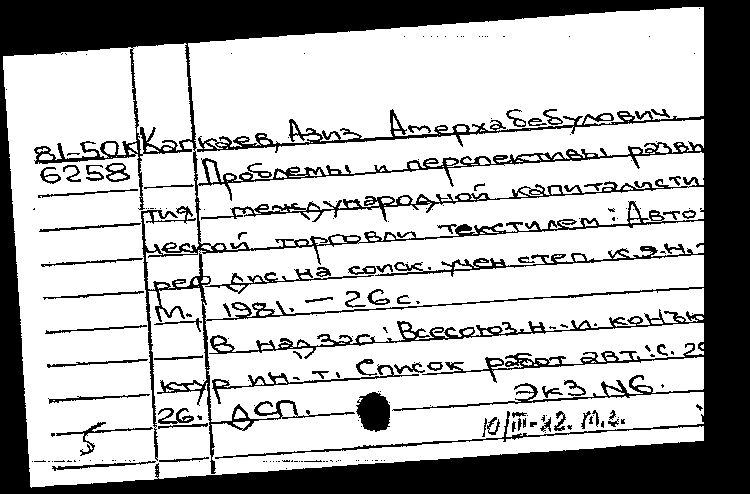 81-50К Капкаев, Азиз Атерхабебулович.
6258 Проблемы и перспективы разви
тия международной капиталисти
ческой торговли текстилем : Авто
реф. дис. на соиск. учен степ. к.э.н.
М., 1981. — 26 с.
В надзаг: Всесоюз. н.-и. конъю
ктур ин-т. Список работ авт.: с. 25
26. ДСП. Экз. N6.
5 10/III-82. М.г.